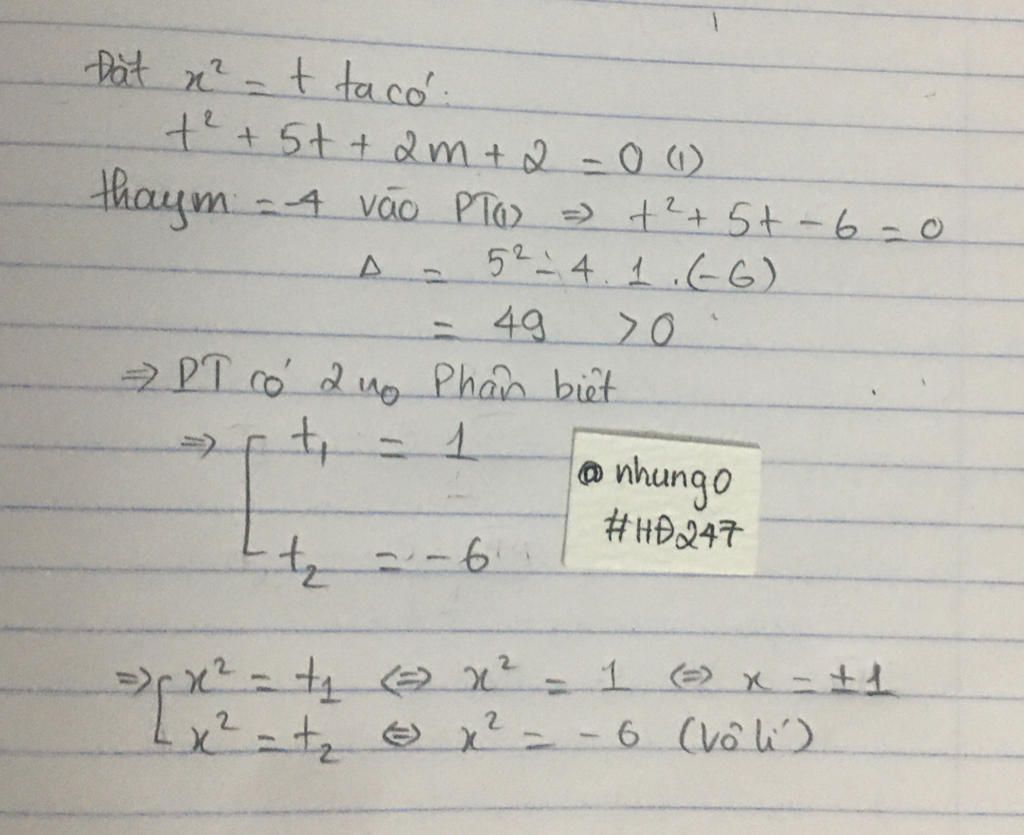 Đặt x² = t ta có:
t² + 5t + 2m + 2 = 0 (1)
thay m = -4 vào PT(1) => t² + 5t - 6 = 0
Δ = 5² - 4. 1 .(-6)
= 49 > 0
=> PT có 2 no Phân biệt
=> [ t₁ = 1
t₂ = -6
@nhung0
#HĐ247
=> [ x² = t₁ <=> x² = 1 <=> x = ±1
x² = t₂ <=> x² = -6 (Vô lí)